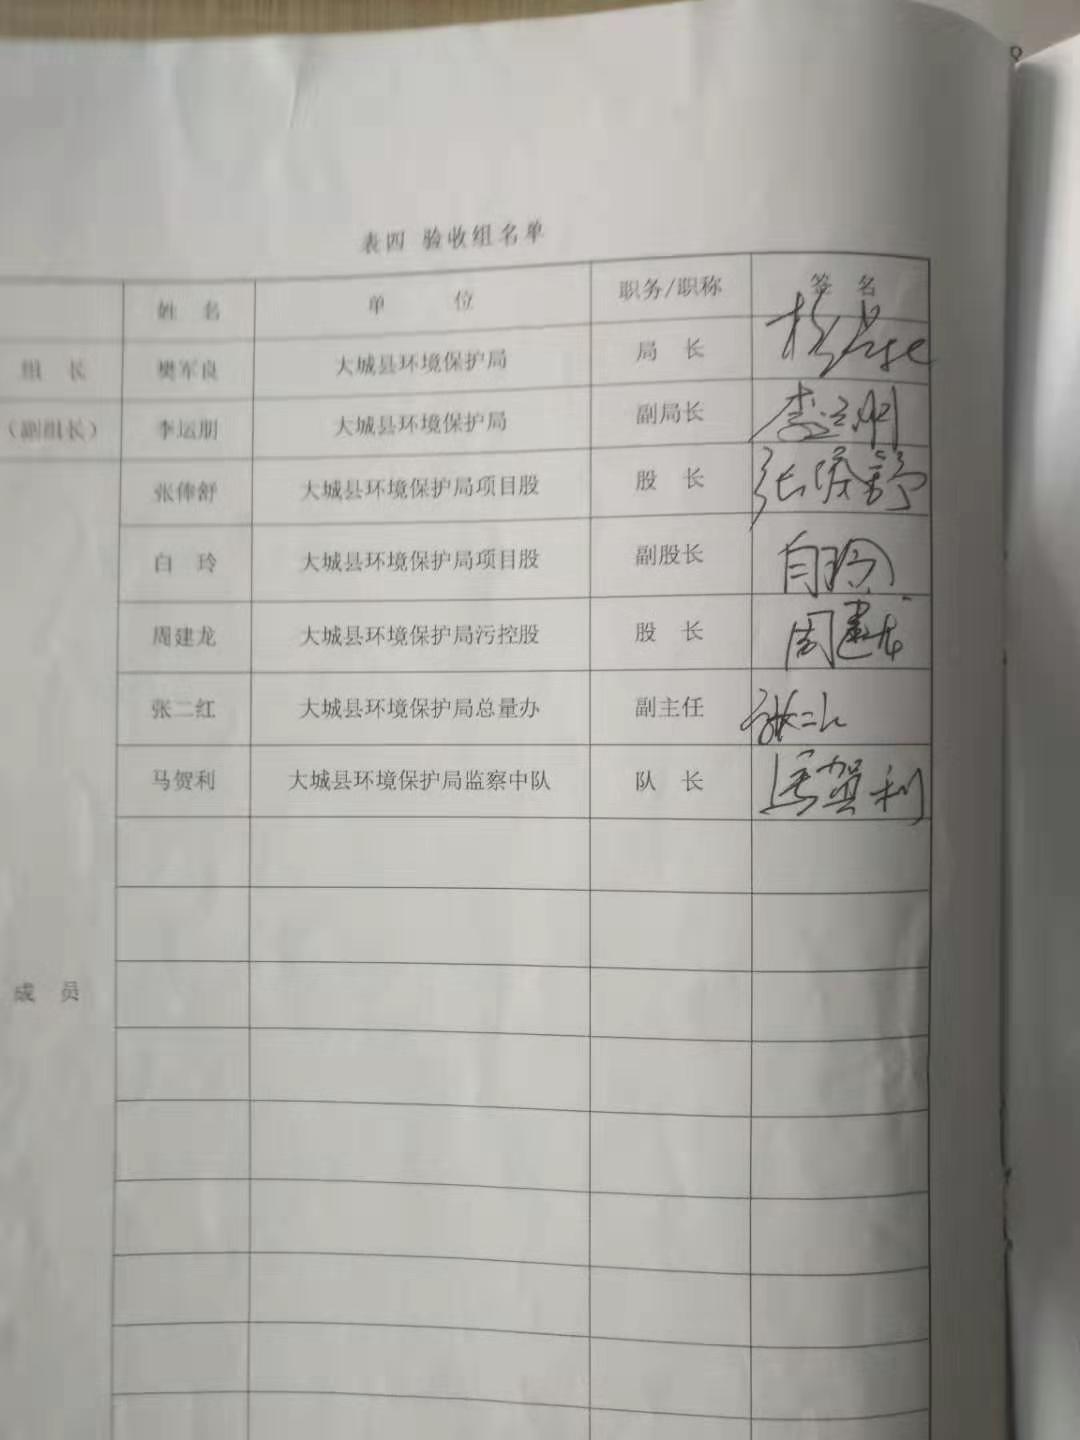 表四 验收组名单
姓 名 单 位 职务/职称 签 名
组 长 樊军良 大城县环境保护局 局 长
（副组长） 李运朋 大城县环境保护局 副局长 李运朋
张俸舒 大城县环境保护局项目股 股 长 张俸舒
白 玲 大城县环境保护局项目股 副股长 白玲
周建龙 大城县环境保护局污控股 股 长 周建龙
张二红 大城县环境保护局总量办 副主任 张二红
马贺利 大城县环境保护局监察中队 队 长 马贺利
成 员